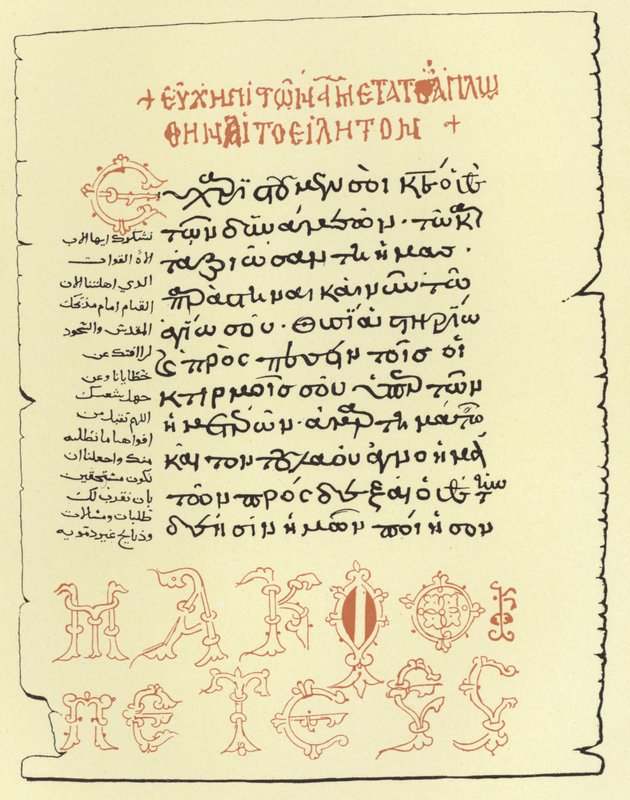 + ΕΥΧΗ ΠΙ ΤΩΝ Α ΜΕΤΑ Τ ΑΠΛΩ
ΘΗΝΑΙ ΤΟ ΕΙΛΗΤΟΝ +
Εὐχαρι στοῦμεν σοι κε ὁ θς
τῶν δυνάμεων · τῶ κα
ταξιώσαντι ἡμασ ·
παραστηναι καὶ νῦν τῶ
ἁγίω σου · θυσιαστηρίω
ϗ προσπεσεῖν τοῖσ οἰ
κτιρμοῖσ σου ὑπὲρ τῶν
ἡμετέρων · ἁμαρτημάτω
καὶ τον του λαου ἀγνοημά
των προσδεξαι ὁ θς τὴν
δέησιν ἡμῶν ποίησον
نشكرك ايها الرب
الاه القوات
الذي اهلتنا الان
القيام امام مذبحك
المقدس والسجود
لرافتك عن
خطايانا وعن
جهل شعبك
اللهم تقبل من
افواهنا ما نطلبه
منك واجعلنا ان
نكون مستحقين
بان نقرب لك
طلبات ومسالات
وذبايح غير دمويه
Μ Α Κ Ο Κ
Π Ε Τ Ε Ξ